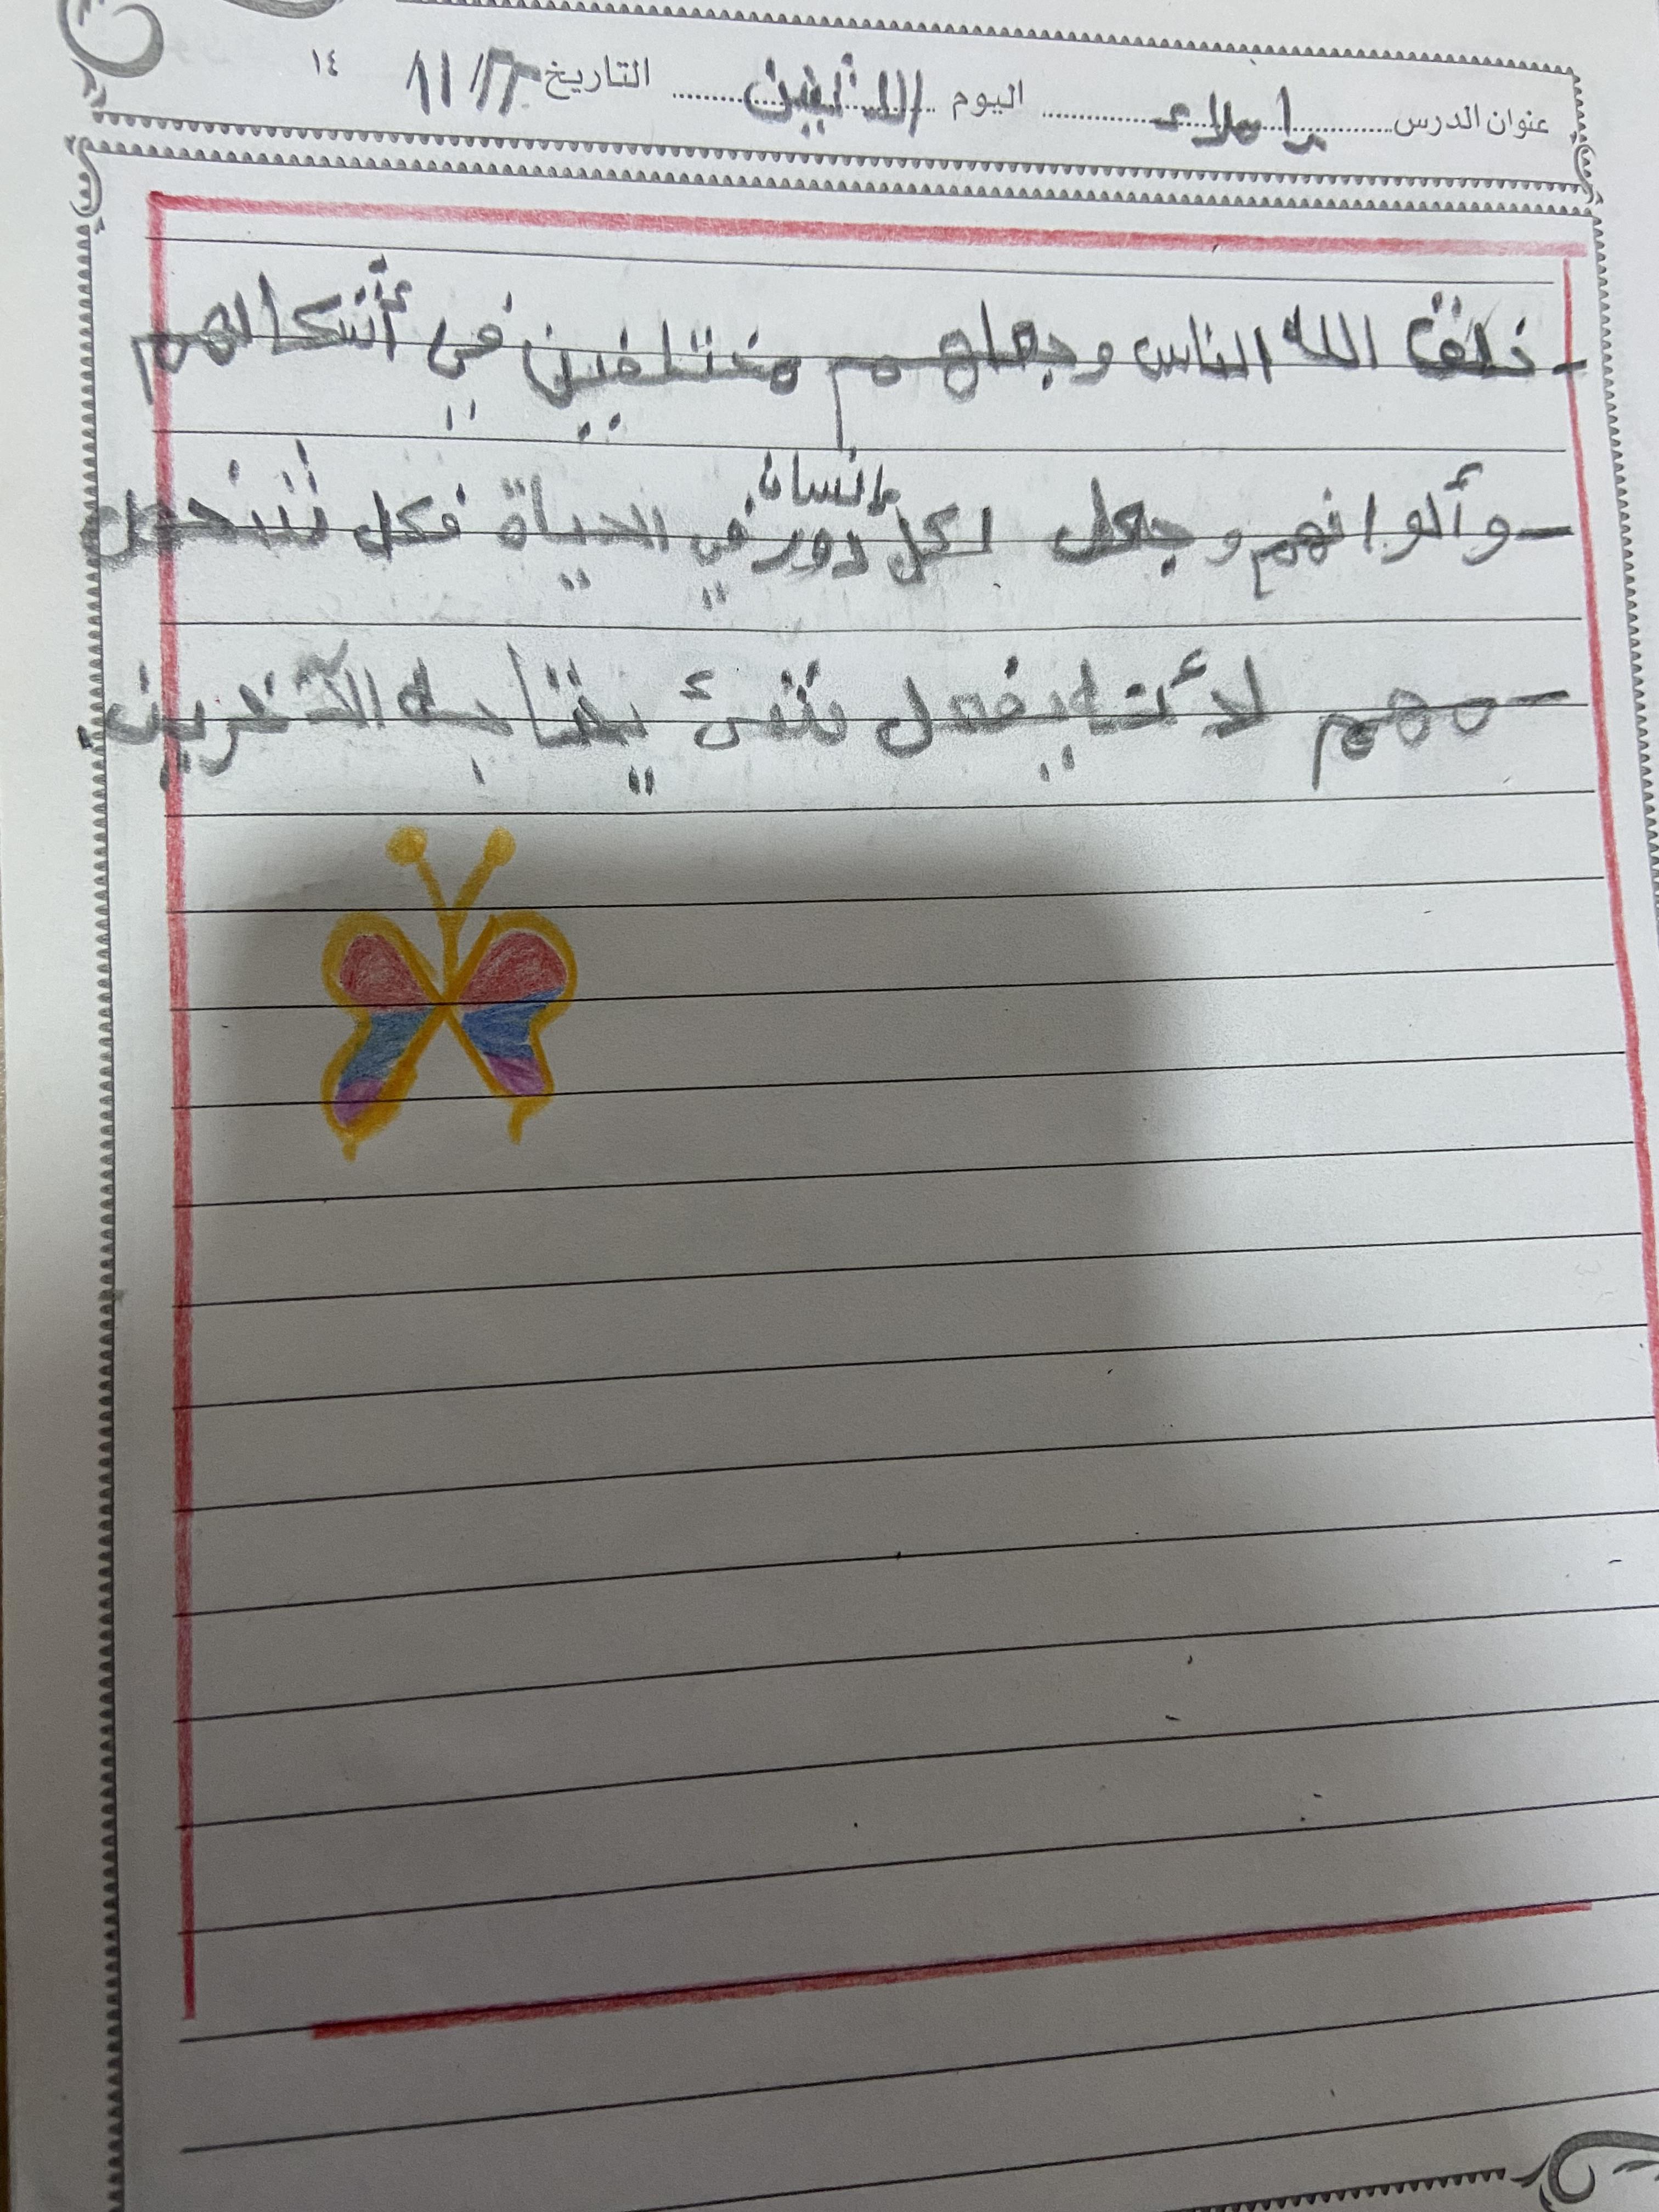 عنوان الدرس إملاء اليوم الاثنين التاريخ ١١/٣ ١٤
- خلق الله الناس وجعلهم مختلفين في أشكالهم
- وألوانهم وجعل لكل إنسان دور في الحياة فكل شخص
- مهم لأنه يفعل شئ يحتاجه الآخرين.